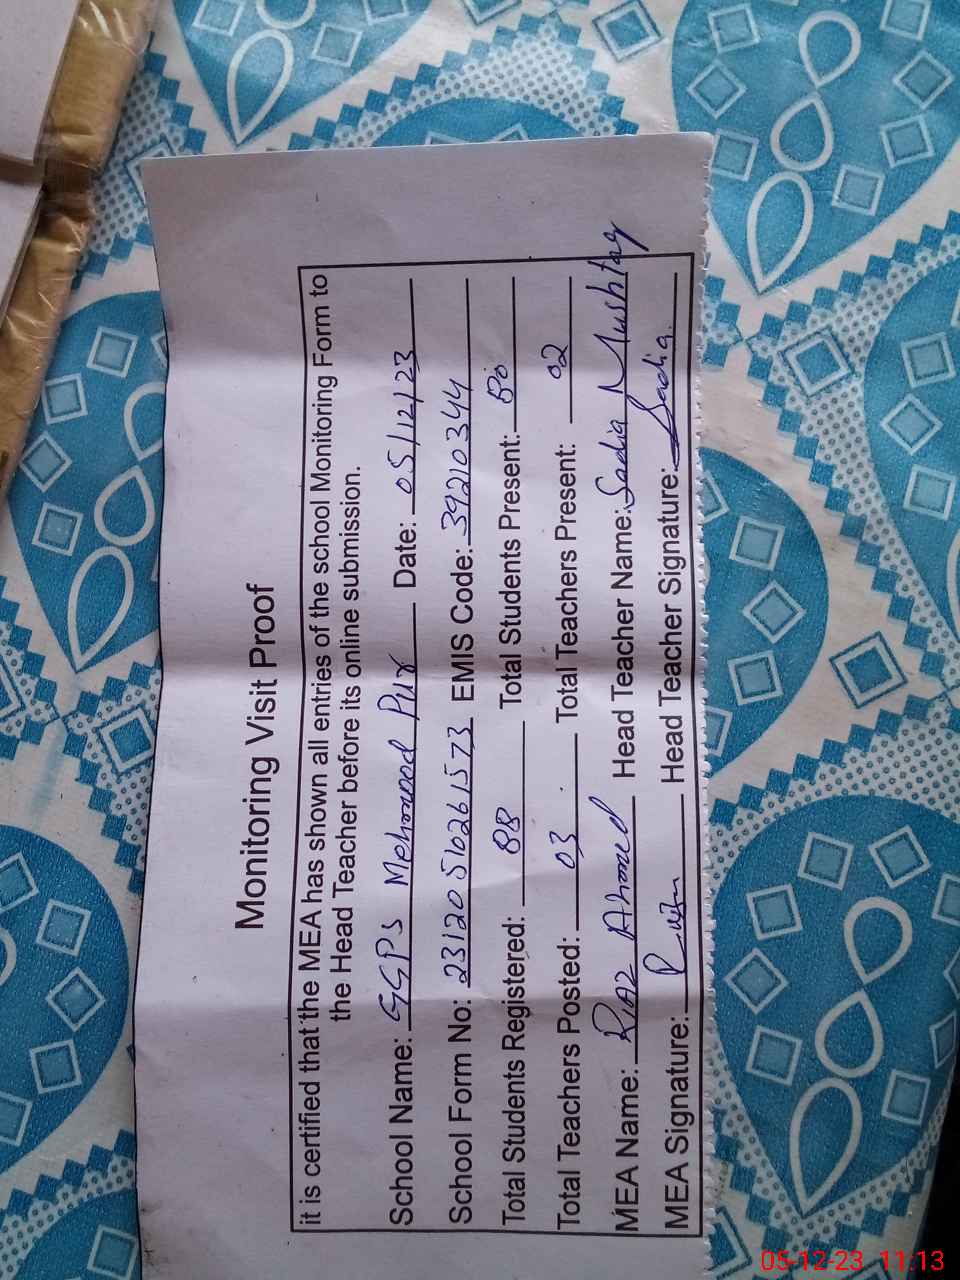 Monitoring Visit Proof
it is certified that the MEA has shown all entries of the school Monitoring Form to
the Head Teacher before its online submission.
School Name: GGPS Mehmood Pur Date: 05/12/23
School Form No: 23120510261573 EMIS Code: 39210344
Total Students Registered: 88 Total Students Present: 80
Total Teachers Posted: 03 Total Teachers Present: 02
MEA Name: Riaz Ahmed Head Teacher Name: Sadia Mushtaq
MEA Signature: Head Teacher Signature: Sadia
05-12-23 11:13